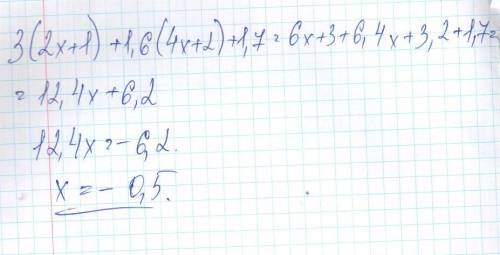 3(2x+1)+1,6(4x+2)+1,7=6x+3+6,4x+3,2+1,7=
=12,4x+6,2
12,4x=-6,2.
x=-0,5.